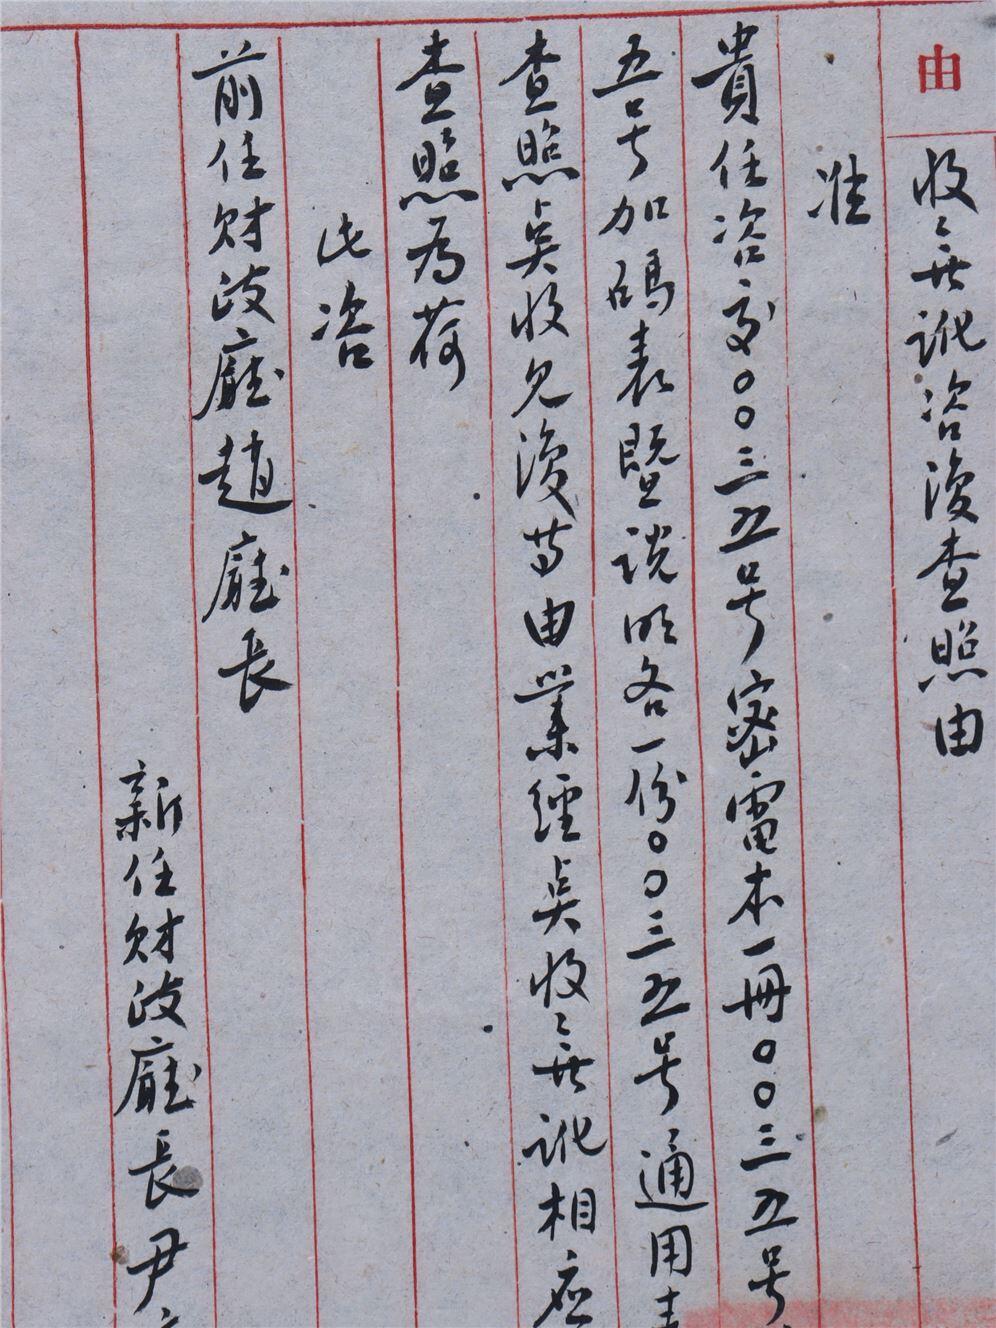 由
收之無訛咨復查照由
准
貴任咨交〇〇三五号密電本一冊〇〇三五号
五号加碼表暨説明各一份〇〇三五号通用表
查照點收見復等由業經點收之無訛相应
查照為荷
此咨
前任財政廳趙廳長
新任財政廳長尹